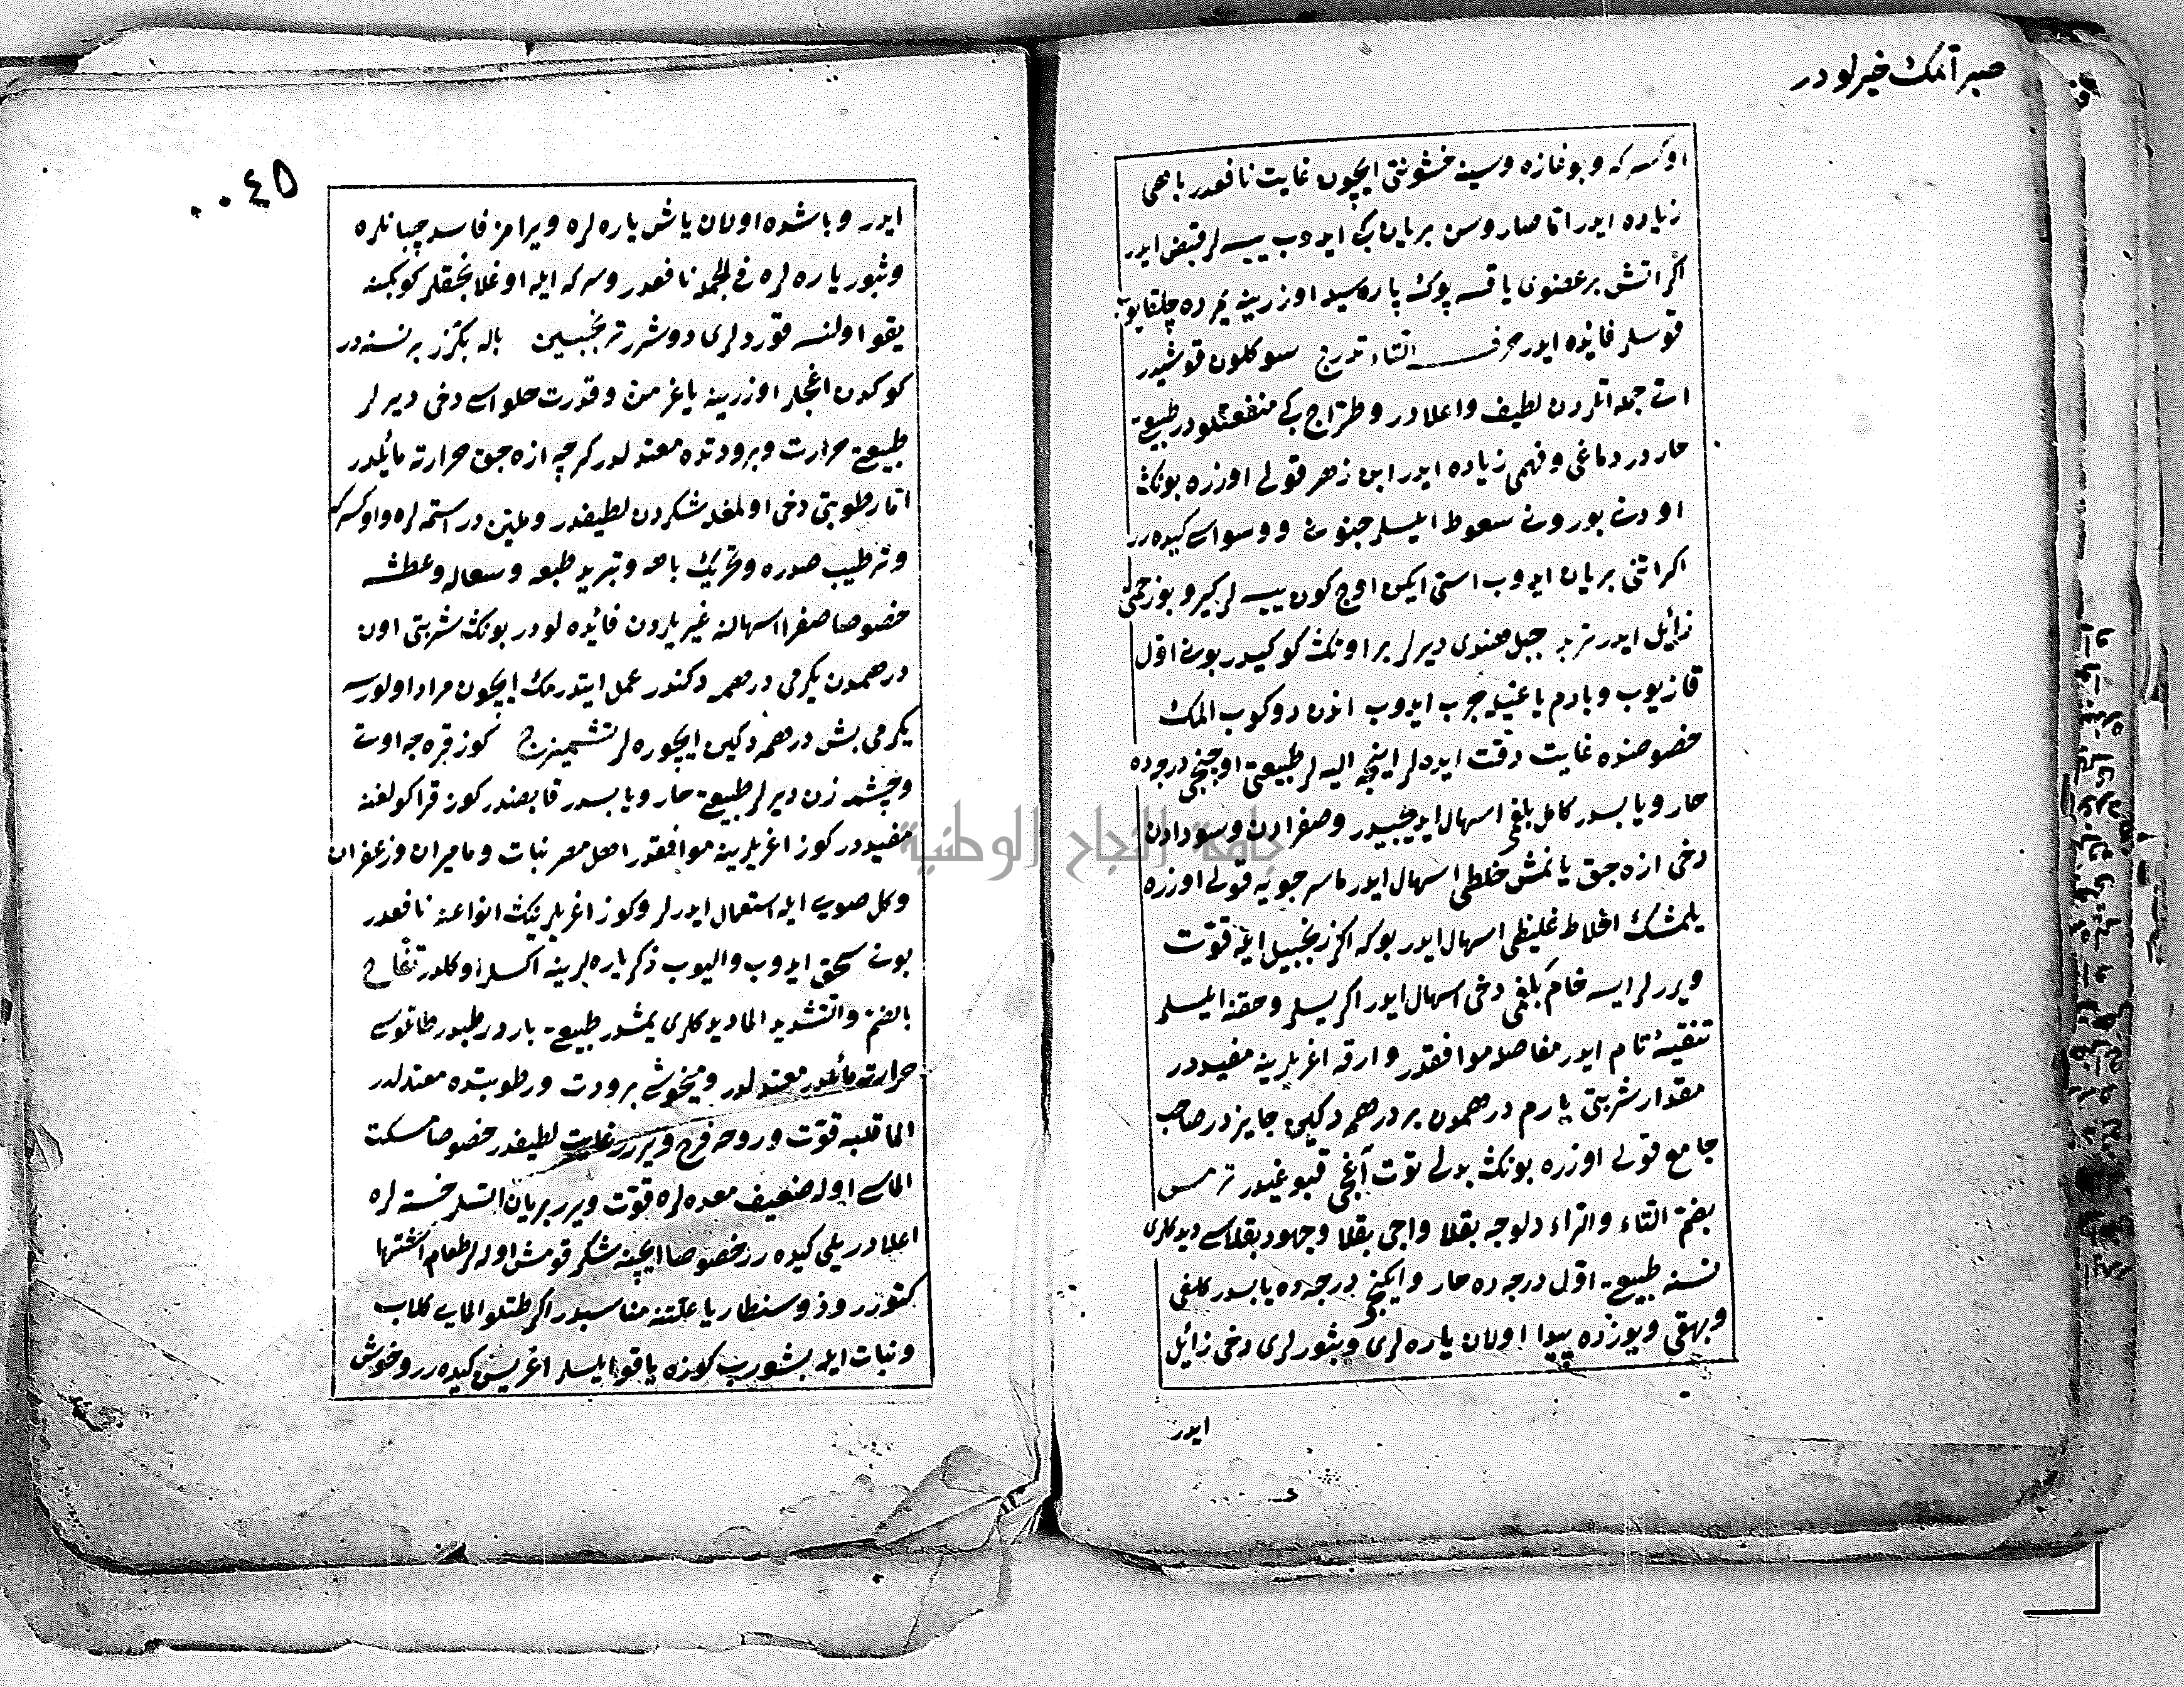 صبر آتمك خيرلودر
اوكسركه و بوغازه وسينه خشونتی ايچون غايت نافعدر باهی
زياده ايدر اما صاروسن بريان ايدوب ييسه لر قبض ايدر
اكر اتش بر عضوی ياقسه پوك پاره سيله اوزرينه يمرده چلقايوب
قوسلر فائده ايدر حرف التاء تدرج سوكلون قوشيدر
اتی جمله اتلردن لطيف واعلادر و طراج كبی منفعتلودر طبيعتی
حاردر دماغی و فهمی زياده ايدر ابن زهر قولی اوزره بونك
اودن بورونه سعوط ايلسلر جنون و وسواسی كيده رر
اكر اتنی بريان ايدوب استی ايكن اوچ كون ييسه لر كيرو بو زحمتی
زائل ايدر تربد جبل هندی ديرلر بر اوتك كوكيدر بونی اول
قازيوب و بادم ياغيله چرب ايدوب اندن دوكوب المك
خصوصنده غايت دقت ايده لر اينجه اليه لر طبيعتی اوچنجی درجه ده
حار و يابسدر كامل بلغمی اسهال ايديجيدر و صفرادن و سودادن
دخی ازه جق يانمش خلطی اسهال ايدر ماسرجويه قولی اوزره
يلمشك اخلاط غليظی اسهال ايدر بوكه اكر زنجبيل ايله قوت
ويررلر ايسه خام بلغمی دخی اسهال ايدر اكر ييسلر وحقنه ايلسلر
تنقيهٔ تام ايدر مفاصله موافقدر و ارقه اغريلرينه مفيددر
مقدار شربتی يارم درهمدن بر درهمه دكين جايزدر صاحب
جامع قولی اوزره بونك بدلی توت آغجی قبوغيدر ترمس
بضم التاء والراء دلوجه بقلا واجی بقلا وجهود بقلاسی ديدكلری
نسنه طبيعتی اول درجه ده حار و ايكنجی درجه ده يابسدر كلفی
وبهقی ويوزده پيدا اولان ياره لری وبثورلری دخی زائل
ايدر
٠٠٤٥
ايدر و باشده اولان ياش ياره لره ويرامز فاسد چبانلره
و بثور ياره لره فی الجمله نافعدر وسركه ايله اوغلانجقلر كوبكنه
يقو اولنسه قوردلری دوشرر ترنجبين باله بكزر بر نسنه در
كوكدن اغجلر اوزرينه ياغر من و قدرت حلواسی دخی ديرلر
طبيعتی حرارت و برودتده معتدلدر كرچه ازه جق حرارته مائلدر
اما رطوبتی دخی اولمغله شكردن لطيفدر و مليّن در استمه لره و اوكسركه
و ترطيب صدره و تحريك باهه و تبريد طبعه و سعاله وعطشه
خصوصا صفرا اسهالنه غيريلردن فائده لودر بونك شربتی اون
درهمدن يكرمی درهمه دكندر عمل ايتدرمك ايچون مراد اولورسه
يكرمی بش درهمه دكين ايچوره لر تشميزج كوز قره جه اوتی
وچشمه زن ديرلر طبيعتی حار و يابسدر قابضدر كوز قراكولغنه
مفيددر كوز اغريلرينه موافقدر اهل مصر نبات و ماميران وزعفران
و كل صويی ايله استعمال ايدرلر و كوز اغريلرينك انواعنه نافعدر
بونی سحق ايدوب واليوب ذكر ياره لرينه اكسلر اوكلدر تفّاح
بالضم والتشديد الما ديدكلری يمشدر طبيعتی باردر رطبدر طاتلوسی
حرارته مائلدر معتدلدر و ميخوشی برودت ورطوبتده معتدلدر
الما قلبه قوت و روحه فرح ويرر غايت لطيفدر خصوصا مسكت
الماسی اوله ضعيف معده لره قوت ويرر بريان اتسلر خسته لره
اعلادر يلی كيده رر خصوصا ايچنه شكر قومش اوله لر طعام اشتها
كتورر و ذوسنطاريا علتنه مناسبدر اكر طتلو المايی كلاب
و نبات ايله بشورب كوزه ياقو ايلسلر اغريسن كيده رر و خوش